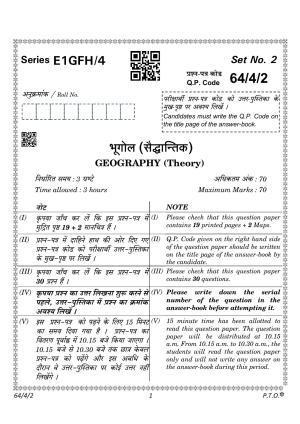 Series E1GFH/4
Set No. 2
प्रश्न-पत्र कोड
Q.P. Code 64/4/2
अनुक्रमांक / Roll No.
परीक्षार्थी प्रश्न-पत्र कोड को उत्तर-पुस्तिका के
मुख-पृष्ठ पर अवश्य लिखें ।
Candidates must write the Q.P. Code on
the title page of the answer-book.
भूगोल (सैद्धान्तिक)
GEOGRAPHY (Theory)
निर्धारित समय : 3 घण्टे
अधिकतम अंक : 70
Time allowed : 3 hours
Maximum Marks : 70
नोट
(I) कृपया जाँच कर लें कि इस प्रश्न-पत्र में
मुद्रित पृष्ठ 19 + 2 मानचित्र हैं ।
(II) प्रश्न-पत्र में दाहिने हाथ की ओर दिए गए
प्रश्न-पत्र कोड को परीक्षार्थी उत्तर-पुस्तिका
के मुख-पृष्ठ पर लिखें ।
(III) कृपया जाँच कर लें कि इस प्रश्न-पत्र में
30 प्रश्न हैं ।
(IV) कृपया प्रश्न का उत्तर लिखना शुरू करने से
पहले, उत्तर-पुस्तिका में प्रश्न का क्रमांक
अवश्य लिखें ।
(V) इस प्रश्न-पत्र को पढ़ने के लिए 15 मिनट
का समय दिया गया है । प्रश्न-पत्र का
वितरण पूर्वाह्न में 10.15 बजे किया जाएगा ।
10.15 बजे से 10.30 बजे तक छात्र केवल
प्रश्न-पत्र को पढ़ेंगे और इस अवधि के
दौरान वे उत्तर-पुस्तिका पर कोई उत्तर नहीं
लिखेंगे ।
NOTE
(I) Please check that this question paper
contains 19 printed pages + 2 Maps.
(II) Q.P. Code given on the right hand side
of the question paper should be written
on the title page of the answer-book by
the candidate.
(III) Please check that this question paper
contains 30 questions.
(IV) Please write down the serial
number of the question in the
answer-book before attempting it.
(V) 15 minute time has been allotted to
read this question paper. The question
paper will be distributed at 10.15
a.m. From 10.15 a.m. to 10.30 a.m., the
students will read the question paper
only and will not write any answer on
the answer-book during this period.
64/4/2
1
P.T.O.